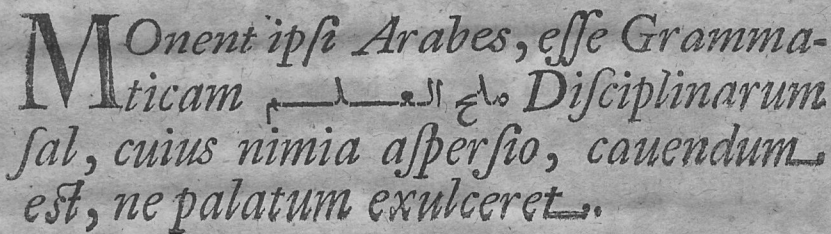 MOnent ipſi Arabes, eſſe Gramma-
ticam ملح العلم Diſciplinarum
ſal, cuius nimia aſperſio, cauendum
eſt, ne palatum exulceret.